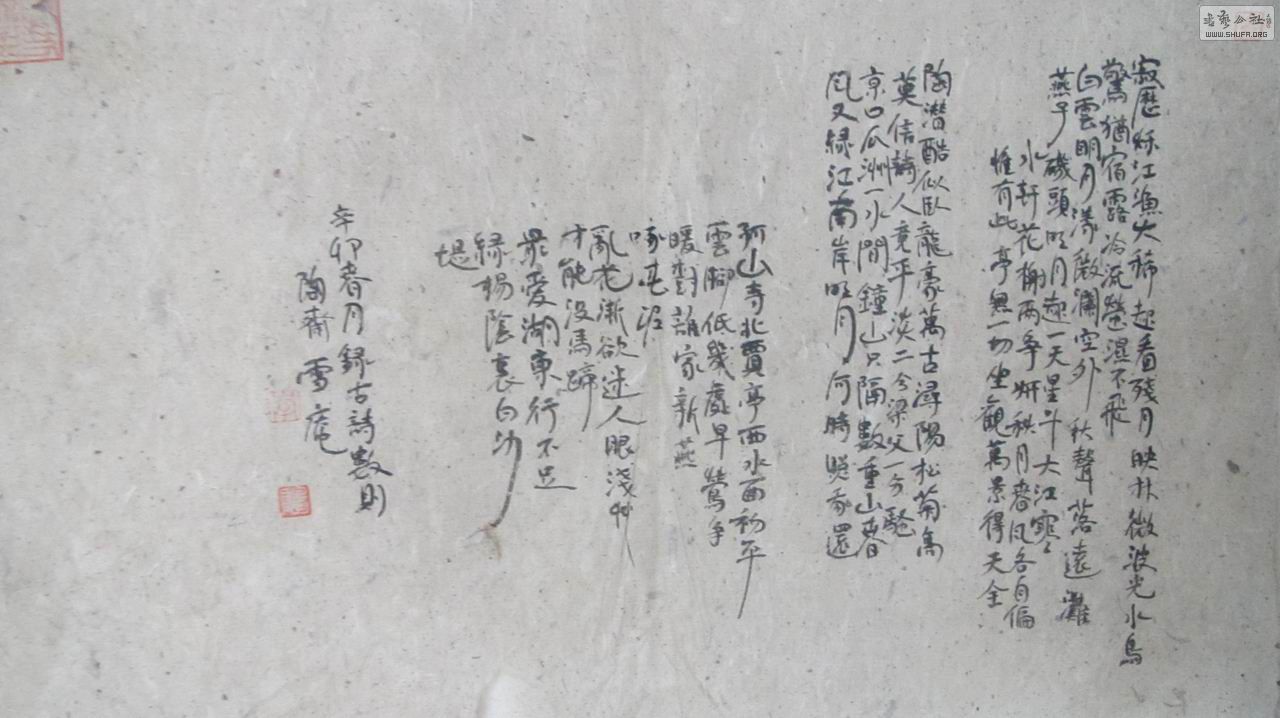 寂歷秋江漁火稀起看殘月映林微波光水鳥
驚猶宿露冷流螢濕不飛
白雲明月漾微瀾空外秋聲落遠灘
燕子磯頭明月起一天星斗大江寒
水軒花榭兩爭妍秋月春風各自偏
惟有此亭無一物坐觀萬景得天全
陶潛酷似臥龍豪萬古潯陽松菊高
莫信詩人竟平淡二分梁父一分騷
京口瓜洲一水間鐘山只隔數重山春
風又綠江南岸明月何時照我還
孤山寺北賈亭西水面初平
雲腳低幾處早鶯爭
暖樹誰家新燕
啄春泥
亂花漸欲迷人眼淺艸
才能沒馬蹄
最愛湖東行不足
綠楊陰裏白沙
堤
辛卯春月錄古詩數則
陶齋雪庵
書藝公社
WWW.SHUFA.ORG